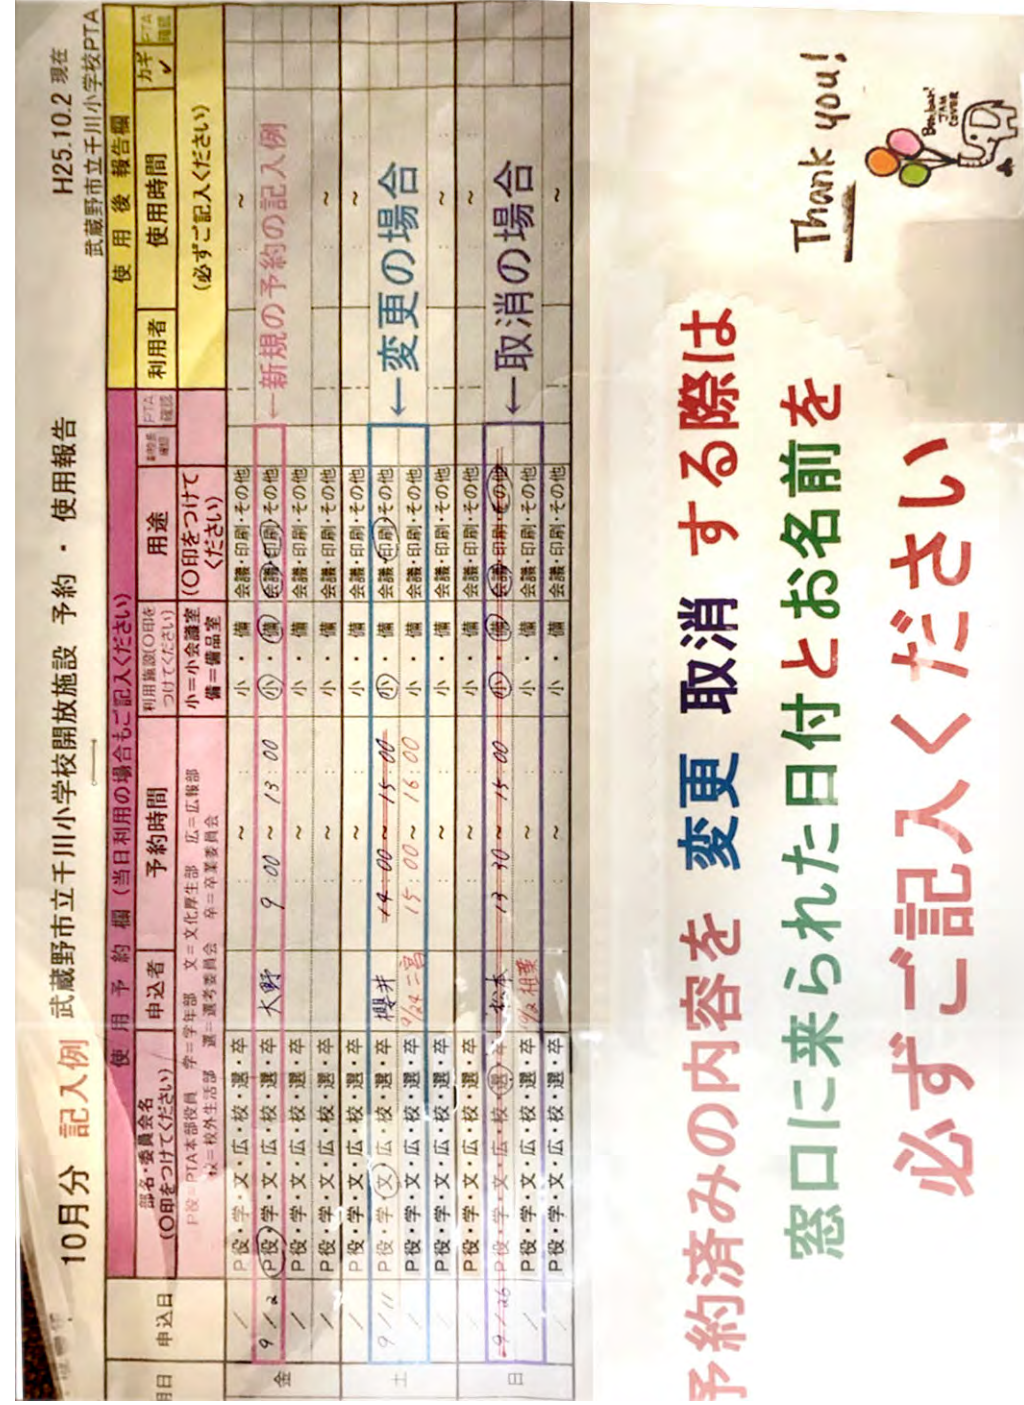 10月分 記入例 武蔵野市立千川小学校開放施設 予約・使用報告
H25.10.2 現在
武蔵野市立千川小学校PTA
使用予約欄(当日利用の場合もご記入ください)
使用後報告欄
申込日
部名・委員会名
(○印をつけてください)
申込者
予約時間
利用施設(○印を
つけてください)
用途
PTA
確認
利用者
使用時間
カギ
✓
PTA
確認
P役=PTA本部役員 学=学年部 文=文化厚生部 広=広報部
校=校外生活部 選=選考委員会 卒=卒業委員会
小=小会議室
備=備品室
(○印をつけて
ください)
(必ずご記入ください)
金
/ P役・学・文・広・校・選・卒 : ~ : 小・備 会議・印刷・その他 : ~ :
9/2 P役・学・文・広・校・選・卒 大野 9:00~13:00 小・備 会議・印刷・その他 ←新規の予約の記入例
/ P役・学・文・広・校・選・卒 : ~ : 小・備 会議・印刷・その他
/ P役・学・文・広・校・選・卒 : ~ : 小・備 会議・印刷・その他 : ~ :
土
/ P役・学・文・広・校・選・卒 : ~ : 小・備 会議・印刷・その他 : ~ :
9/11 P役・学・文・広・校・選・卒 櫻井 14:00~15:00 小・備 会議・印刷・その他 ←変更の場合
P役・学・文・広・校・選・卒 9/24 二宮 15:00~16:00 小・備 会議・印刷・その他
/ P役・学・文・広・校・選・卒 : ~ : 小・備 会議・印刷・その他 : ~ :
日
/ P役・学・文・広・校・選・卒 : ~ : 小・備 会議・印刷・その他 : ~ :
9/26 P役・学・文・広・校・選・卒 松本 13:30~15:00 小・備 会議・印刷・その他 ←取消の場合
/ P役・学・文・広・校・選・卒 10/2 相葉 : ~ : 小・備 会議・印刷・その他
/ P役・学・文・広・校・選・卒 : ~ : 小・備 会議・印刷・その他 : ~ :
予約済みの内容を 変更 取消 する際は
窓口に来られた日付とお名前を
必ずご記入ください
Thank you!